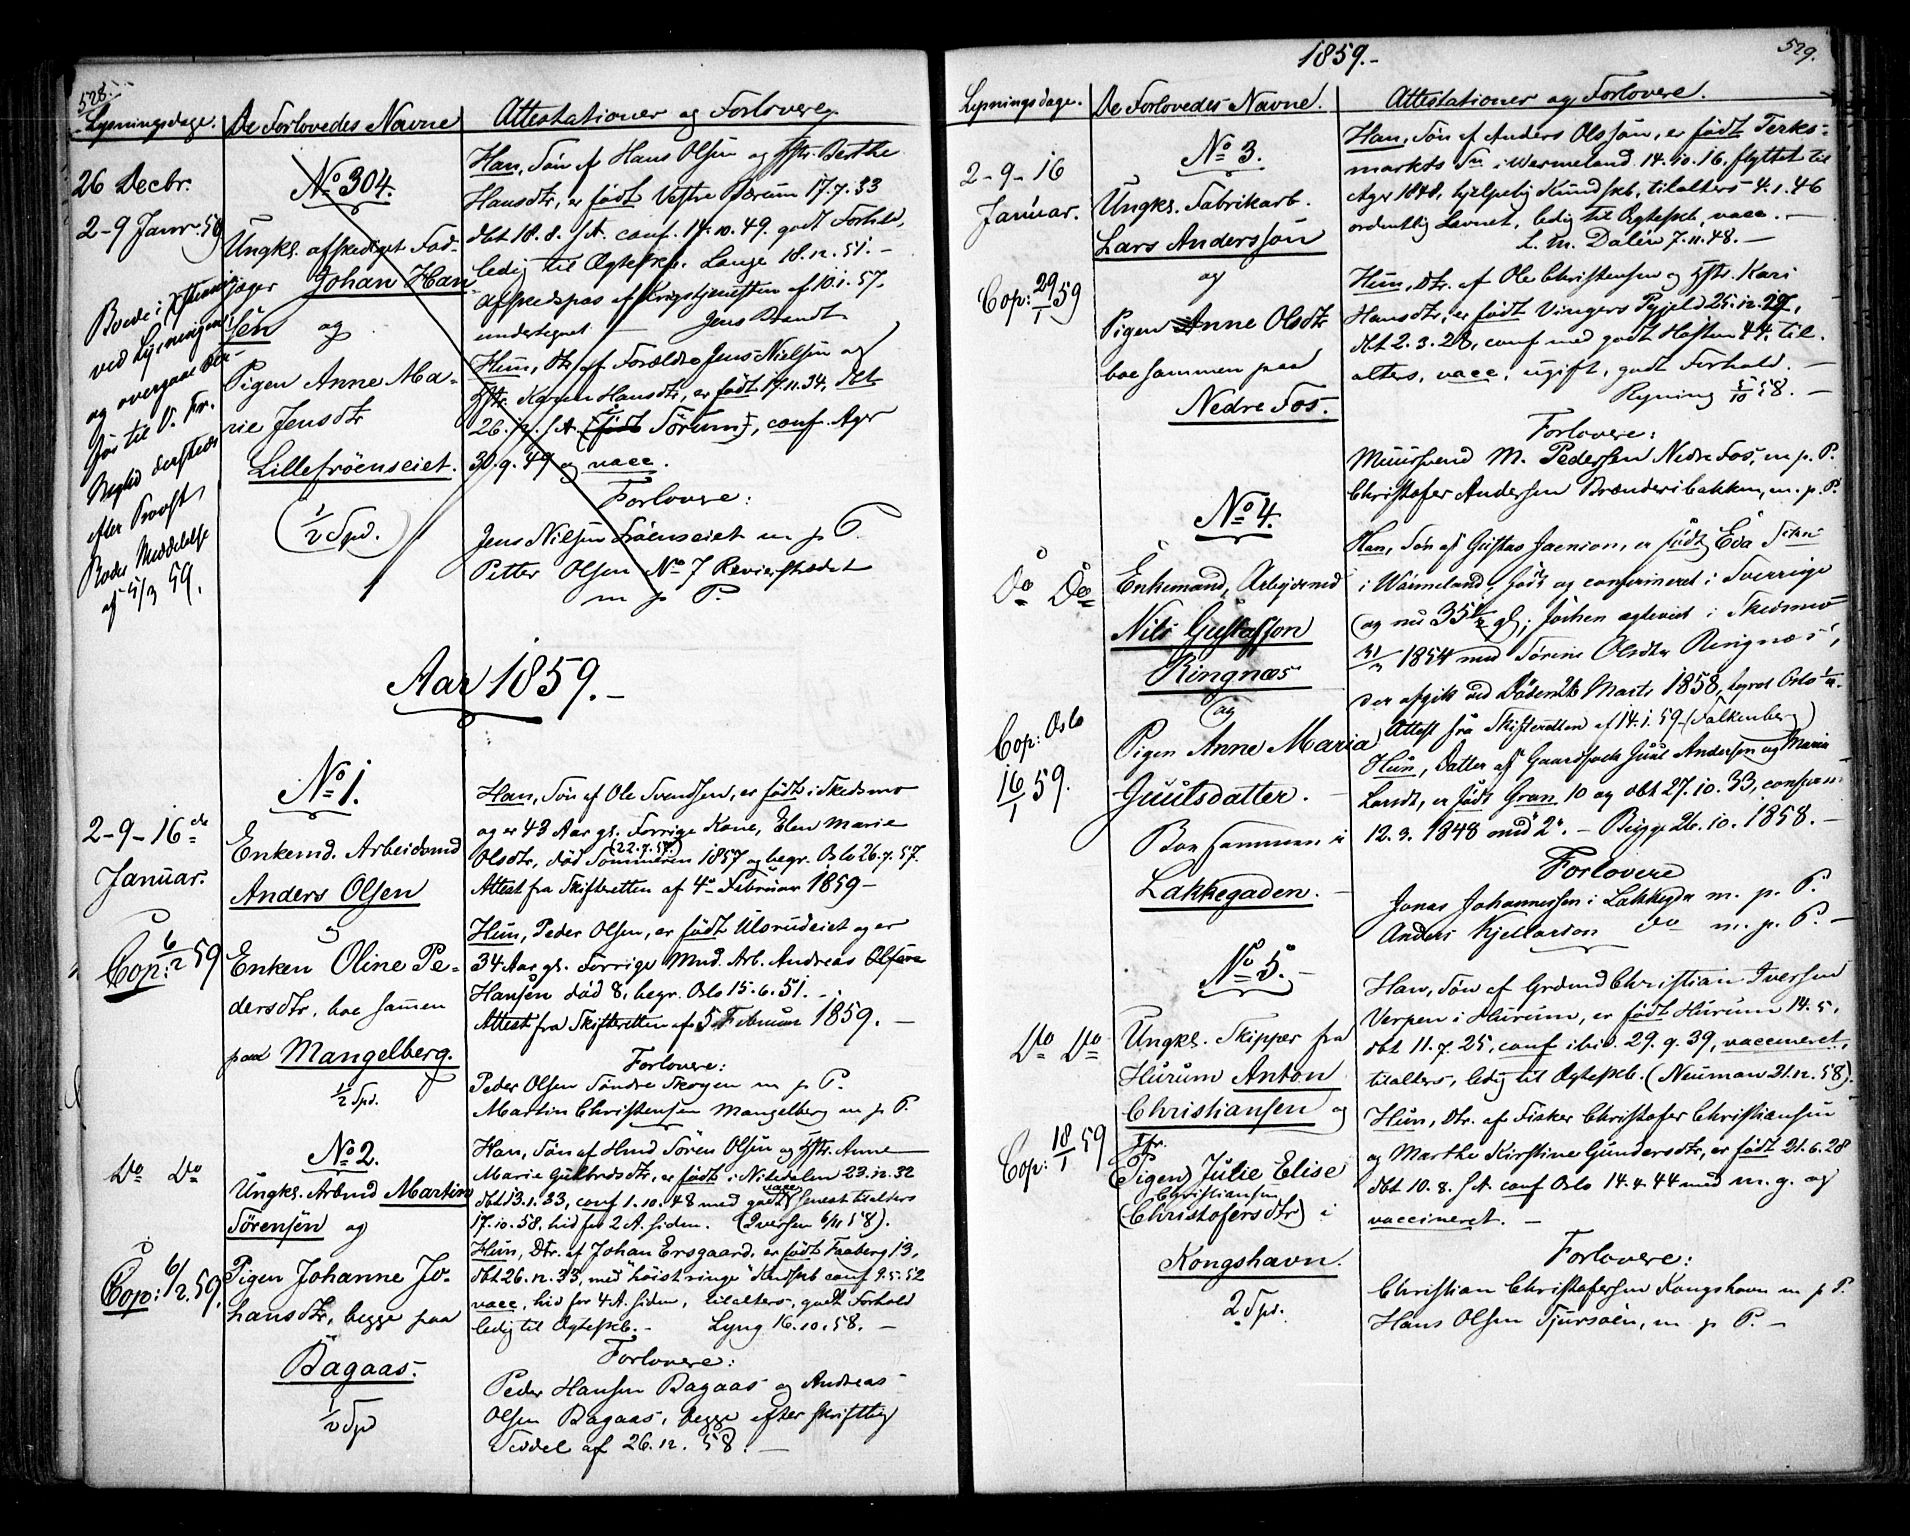 528.
Lysningsdage.
De Forlovedes Navne
Attestationer og Forlovere
26 Decbr.
2-9 Janr. 59
No 304.
Ungks. afskediget Jæger
Johan Hansen
og
Pigen Anne Marie Jensdtr
Lillefröenseiet.
1/2 Spd.
ved Lysningen
og
til V. Fr.
dersteds
efter Provst
Rodes Meddelelse
af 5/3 59.
Han, Sön af Hans Olsen og Hstr. Berthe
Hansdtr, er födt Vestre Bærum 17.7.33
dbt 18.8. s.A. conf. 14.10.49. godt Forhld.
ledig til Ægteskb. Lange 18.12.51.-
Afskedspas af Krigstjenesten af 10.1.57.
undertegnet Jens Brandt
Hun, Dtr. af Forældre Jens Nielsen og
Hstr. Karen Hansdtr, er födt 17.11.34, dbt
26.12. s.A. Sörum, conf. Agr
30.9.49 og vacc.
Forlovere:
Jens Nilsen Fröenseiet m p P.
Petter Olsen No 7 Revierstrædet
m p P.
Aar 1859.-
2-9-16de
Januar.
Cop: 6/2 59
No 1.
Enkemd. Arbeidsmd
Anders Olsen
og
Enken Oline Pe-
dersdtr, boe samen
paa Mangelberg.
1/2 Spd.
Han, Sön af Ole Svendsen, er födt i Skedsmo
og er 43 Aar gl. Forrige Kone, Elen Marie
Olsdtr, död Sommeren (22.7.57) 1857 og begr. Oslo 26.7.57.
Attest fra Skifteretten af 4de Februar 1859-
Hun, Peder Olsen, er födt Ulsrudeiet og er
34 Aar gl. Forrige Mnd. Arb. Andreas
Hansen död 8, begr. Oslo 15.6.51.-
Attest fra Skifteretten af 5 Februar 1859.-
Forlovere:
Peder Olsen Söndre Skogen m p P.
Martin Christensen Mangelberg m p P.
Do Do
Cop: 6/2 59.
No 2.
Ungks. Arbmd Martin
Sörensen og
Pigen Johanne Jo-
hansdtr, begge paa
Bagaas.
1/2 Spd
Han, Sön af Hmd Sören Olsen og Hstr. Anne
Marie Gulbrdsdtr, er födt i Nitedalen 23.12.32
dbt 13.1.33, conf 1.10.48 med godt, vacc, senest tilalters
17.10.58, hid for 2 A. siden. (Iversen 6/11 58).
Hun, Dtr. af Johan Ersgaard, er födt Faaberg 13,
dbt 26.12.33, med "höist ringe" Kndskb conf 9.5.52
vacc, hid for 4 A. siden, tilalters, godt Forhold
ledig til Ægteskb.- Lyng 16.10.58.-
Forlovere:
Peder Hansen Bagaas og Andreas
Olsen Bagaas, begge efter skriftlig
Seddel af 26.12.58.-
1859.-
529.
Lysningsdage.
De Forlovedes Navne.
Attestationer og Forlovere.
2-9-16
Januar.
Cop: 29/1 59
No 3.
Ungks. Fabrikarb.
Lars Andersson
og
Pigen Anne Olsdtr
boe sammen paa
Nedre Fos.
Han, Sön af Anders Olsson, er födt
markds Sn i Wermeland 14.10.16, flyttet til
Agr 1848, hjelpelig Kundskb, tilalters 4.1.46
ordentlig Levnet, ledig til Ægteskb, vacc.-
L. M. Dalén 7.11.48.-
Hun, Dtr. af Ole Christensen og Hstr. Kari
Hansdtr, er födt Vingers Pgjeld 25.12.27,
dbt 2.3.28, conf med godt Hösten 44, til-
alters, vacc, ugift, godt Forhold.-
Ryning 5/10 58.-
Forlovere:
Muursvend M. Pedersen Nedre Fos, m p. P.
Christofer Andersen Brænderibakken, m. p. P.
Do Do
Cop: Oslo
16/1 59.
No 4.
Enkemand, Arbeidsmd
Nils Gustafson
Ringnæs
og
Pigen Anne Maria
Juulsdatter.-
Boe sammen i
Lakkegaden.-
Han, Sön af Gustas, er födt Eda Sokn
i Wärmeland, födt og confirmeret i Sverrige
(og nu 35 1/2 gl; forhen ægteviet i Skedsmo
31/3 1854 med Sörine Olsdtr Ringnæs,
der afgik ved Döden 26 Marts 1858, begrvt Oslo 1/4.
Attest fra Skifteretten af 14.1.59 (Falkenberg)
Hun, Datter af Gaardfode Juul Andersen og Maria
Larsdt, er födt Gran 10 og dbt 27.10.33, confirm
12.3.1848 med "2".- Bugge 26.10.1858.-
Forlovere
Jonas Johannessen i Lakkegdn m. p. P.
Anders Kjellarson do m. p. P.-
Do Do
Cop: 18/1 59
No 5.-
Ungks. Skipper fra
Hurum Anton
Christiansen og
Jfr.
(Pigen) Julie Elise
Christiansen
(Christofersdtr) i
Kongshavn.
2 Spd.
Han, Sön af Grdmd Christian Iversen
Verpen i Hurum, er födt Hurum 14.5,
dbt 11.7.25, conf ibid. 29.9.39, vaccineret,
tilalters, ledig til Ægteskb. (Neuman 21.12.58).
Hun, Dtr. af Fisker Christofer Christiansen
og Marthe Kirstine Gundersdtr, er födt 21.6.28
dbt 10.8. s.A. conf Oslo 14.4.44 med m. g. og
vaccineret.-
Forlovere:
Christian Christofersen Kongshavn m p P.
Hans Olsen Tjursöen, m p P.-